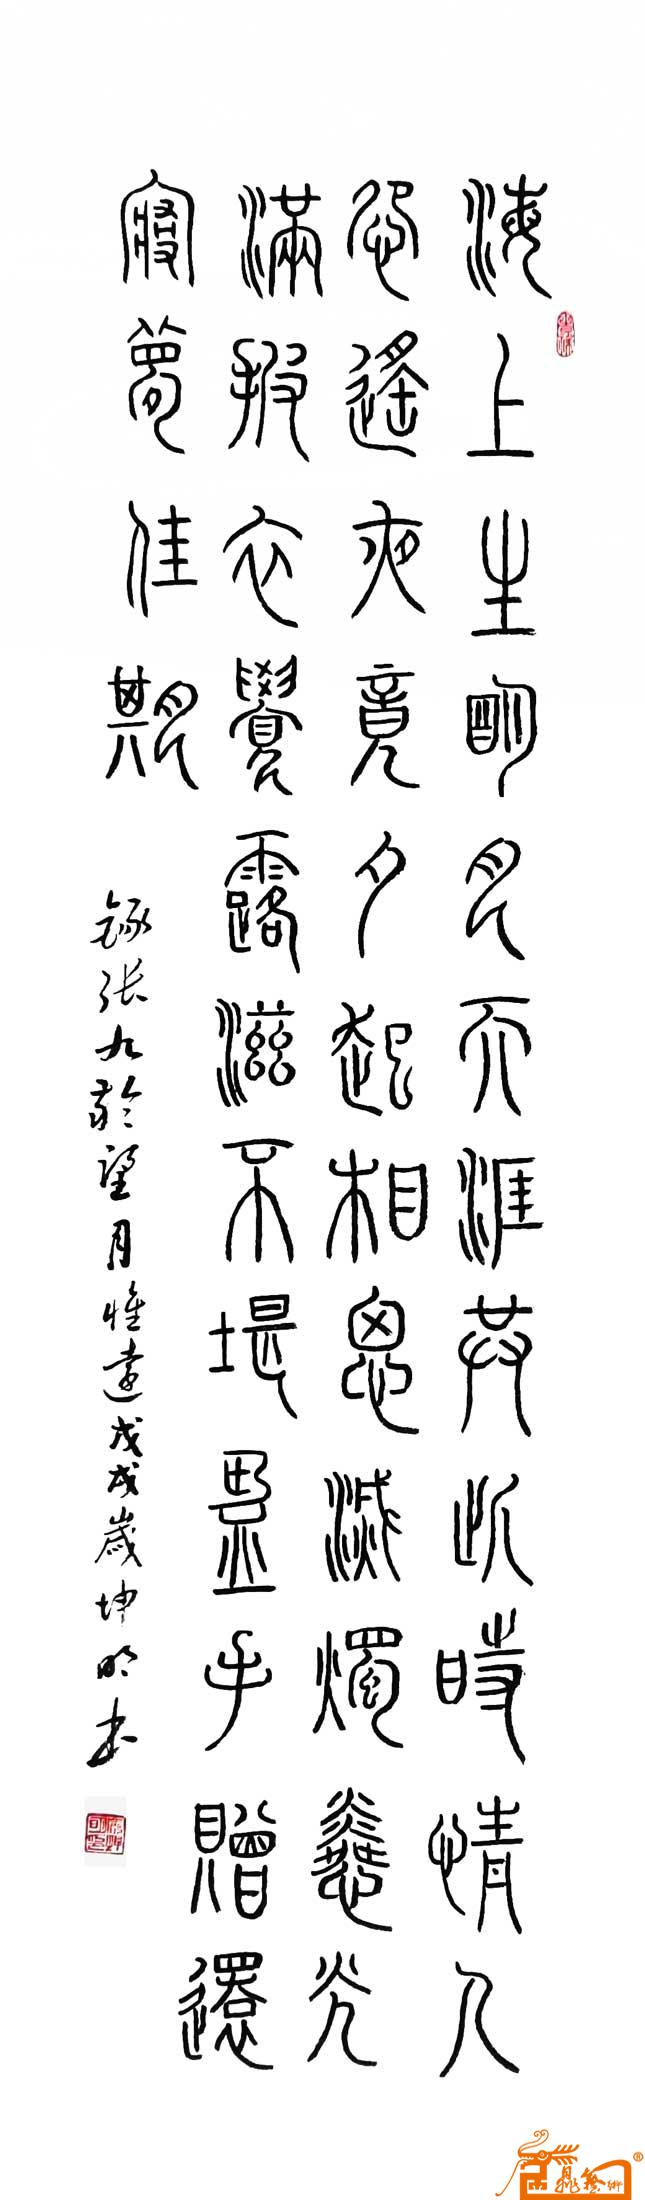 海上生明月天涯共此時情人
怨遙夜竟夕起相思滅燭憐光
滿披衣覺露滋不堪盈手贈還
寢夢佳期
録张九齡望月懷遠戊戌歲坤明书